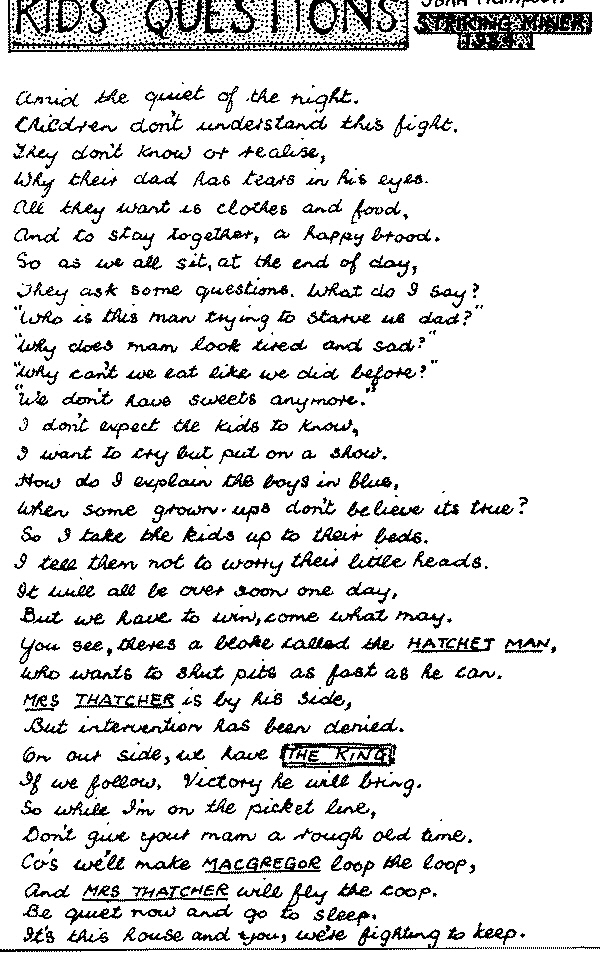 KIDS' QUESTIONS
STRIKING MINER
1984.
Amid the quiet of the night.
Children don't understand this fight.
They don't know or realise,
Why their dad has tears in his eyes.
All they want is clothes and food,
And to stay together, a happy brood.
So as we all sit, at the end of day,
They ask some questions. What do I say?
"Who is this man trying to starve us dad?"
"Why does mam look tired and sad?"
"Why can't we eat like we did before?"
"We don't have sweets anymore."
I don't expect the kids to know,
I want to cry but put on a show.
How do I explain the boys in blue,
When some grown-ups don't believe its true?
So I take the kids up to their beds.
I tell them not to worry their little heads.
It will all be over soon one day,
But we have to win, come what may.
You see, theres a bloke called the HATCHET MAN,
Who wants to shut pits as fast as he can.
MRS THATCHER is by his side,
But intervention has been denied.
On our side, we have THE KING
If we follow, Victory he will bring.
So while I'm on the picket line,
Don't give your mam a rough old time.
Co's we'll make MACGREGOR loop the loop,
And MRS THATCHER will fly the coop.
Be quiet now and go to sleep.
It's this house and you, we're fighting to keep.